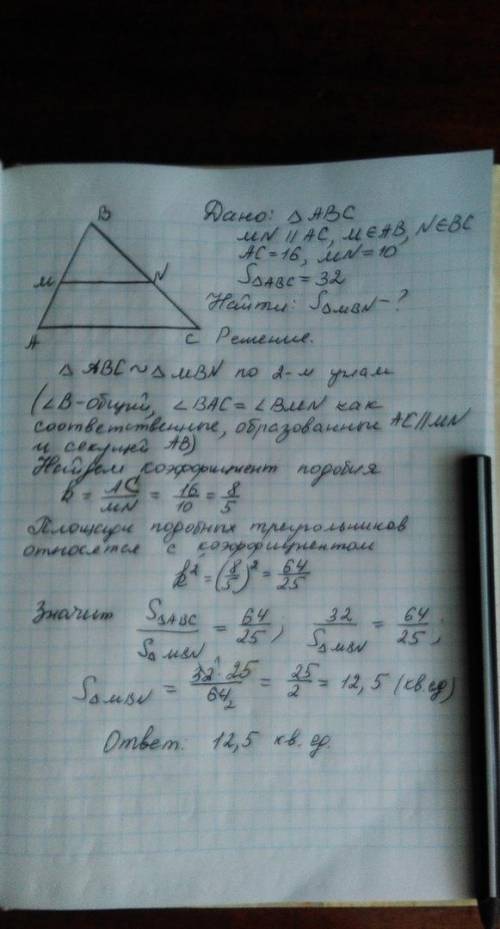 B
Дано: △ABC
MN || AC, M∈AB, N∈BC
M
N
AC=16, MN=10
S△ABC=32
Найти: S△MBN-?
A
C
Решение.
△ ABC ~ △MBN по 2-м углам
(∠B-общий, ∠BAC = ∠BMN как
соответственные, образованные AC||MN
и секущей AB)
Найдем коэффициент подобия
k = AC/MN = 16/10 = 8/5
Площади подобных треугольников
относятся с коэффициентом
k² = (8/5)² = 64/25
Значит S△ABC/S△MBN = 64/25; 32/S△MBN = 64/25;
S△MBN = 32¹·25/64₂ = 25/2 = 12,5 (кв.ед)
Ответ: 12,5 кв. ед.